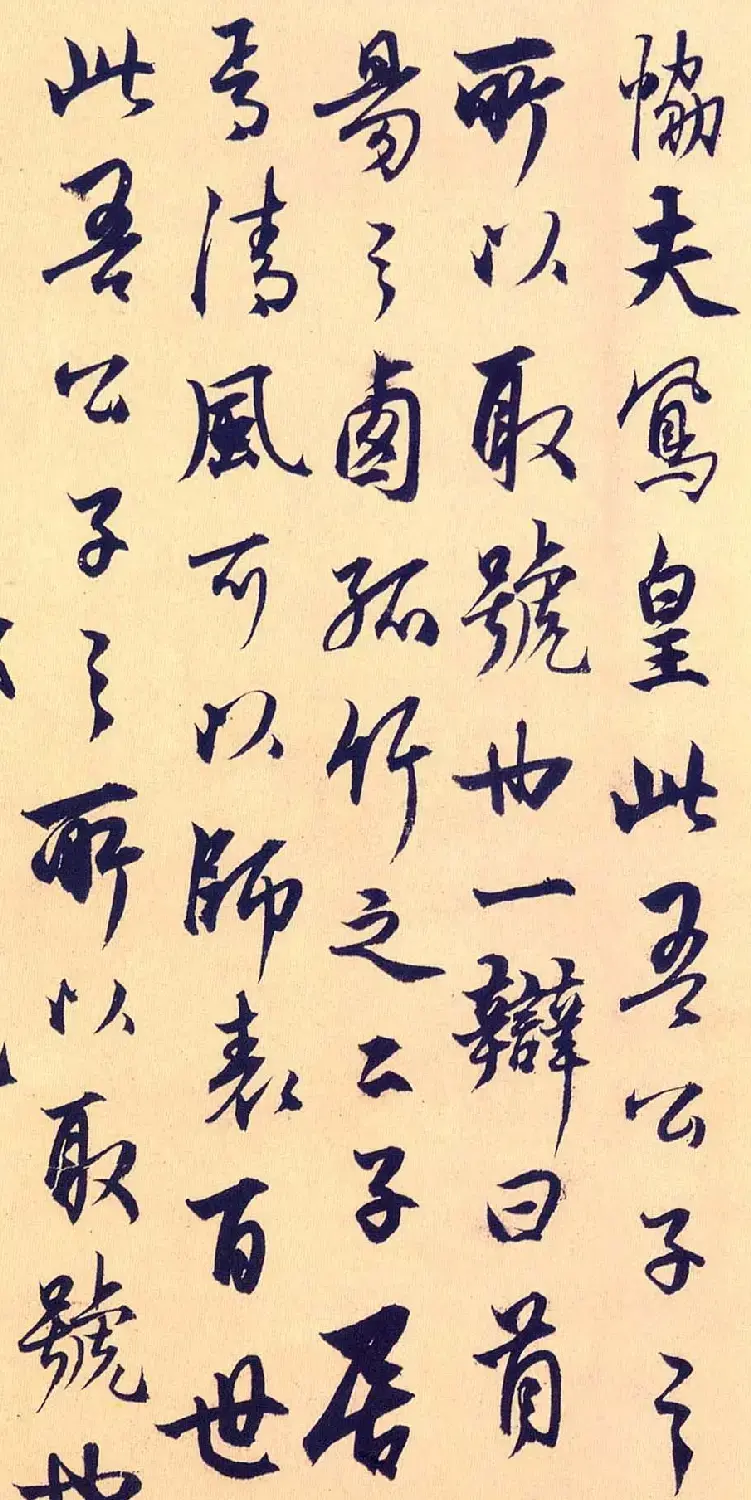 恊夫鳳皇此吾公子之
所以取號也一辯曰首
昜之鹵孤竹之二子居
焉清風可以師表百世
此吾公子之所以取號也